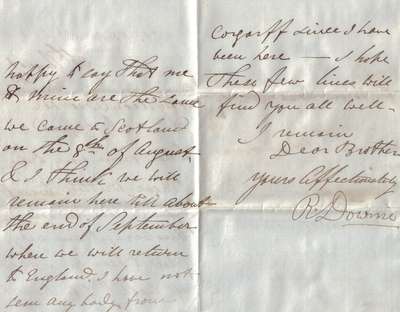 happy to say that me
& mine are the same
we came to Scotland
on the 8th of August
& I think we will
remain here till about
the end of September
where we will return
to England. I have not
seen any body from
Corgarff since I have
been here — I hope
these few lines will
find you all well—
I remain
Dear Brother
yours Affectionately
R Downie